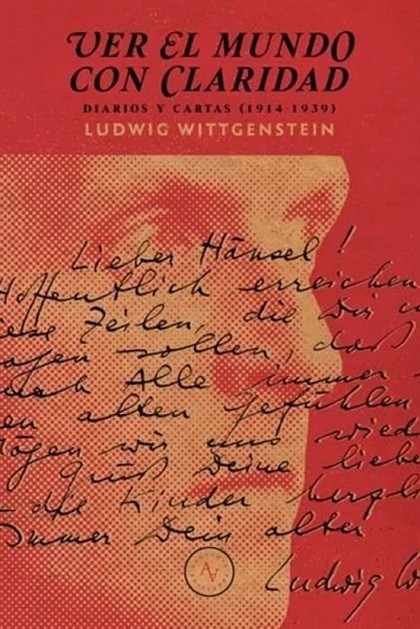 VER EL MUNDO
CON CLARIDAD
DIARIOS Y CARTAS (1914-1939)
LUDWIG WITTGENSTEIN
Lieber Hänsel!
Hoffentlich erreichen
iese Zeilen, die Dir
agen sollen, daß
Alle immer
en alten Gefühlen
mögen wir uns wied
Gruß Deine liebe
die Kinder herzl
Immer Dein alter
Ludwig W
AV